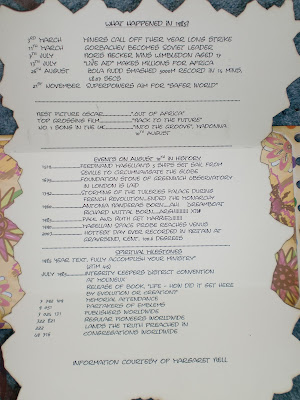 WHAT HAPPENED IN 1985?
3RD MARCH MINERS CALL OFF THEIR YEAR LONG STRIKE
11TH MARCH GORBACHEV BECOMES SOVIET LEADER
7TH JULY BORIS BECKER WINS WIMBLEDON AGED 17
13TH JULY "LIVE AID" MAKES MILLIONS FOR AFRICA
26TH AUGUST ZOLA BUDD SMASHED 5000M RECORD IN 14 MINS,
SECS
21ST NOVEMBER SUPERPOWERS AIM FOR "SAFER WORLD"
BEST PICTURE OSCAR "OUT OF AFRICA"
TOP GROSSING FILM "BACK TO THE FUTURE"
NO. 1 SONG IN THE UK "INTO THE GROOVE", MADONNA.
10TH AUGUST
EVENTS ON AUGUST 10TH IN HISTORY
1519 FERDINAND MAGELLAN'S 5 SHIPS SET SAIL FROM
SEVILLE TO CIRCUMNAVIGATE THE GLOBE
1675 FOUNDATION STONE OF GREENWICH OBSERVATORY
IN LONDON IS LAID
1792 STORMING OF THE TUILERIES PALACE DURING
FRENCH REVOLUTION...ENDED THE MONARCHY
1960 ANTONIA BANDERAS BORN....AHH DREAMBOAT
RICHARD BORN....ARGHHHHH
1985 PAUL AND RUTH GET MARRIED!!!!!
1990 MAGELLAN SPACE PROBE REACHES VENUS
2003 HOTTEST DAY EVER RECORDED IN BRITAIN AT
GRAVESEND, KENT. 100.6 DEGREES
SPIRITUAL MILESTONES
1985 YEAR TEXT, FULLY ACCOMPLISH YOUR MINISTRY
2TIM 4:5
JULY 1985 INTEGRITY KEEPERS DISTRICT CONVENTION
AT MOLINEUX
RELEASE OF BOOK, "LIFE - HOW DID IT GET HERE
BY EVOLUTION OR CREATION?"
MEMORIAL ATTENDANCE
PARTAKERS OF EMBLEMS
PUBLISHERS WORLDWIDE
REGULAR PIONEERS WORLDWIDE
LANDS THE TRUTH PREACHED IN
CONGREGATIONS WORLDWIDE
INFORMATION COURTESY OF MARGARET NELL